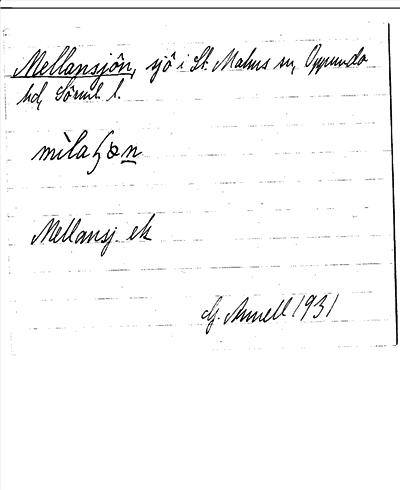 Mellansjön, sjö i St. Malms sn, Oppunda
hd, Sörml. l.
mìlaɧøn
Mellansj. ek
G. Annell 1931